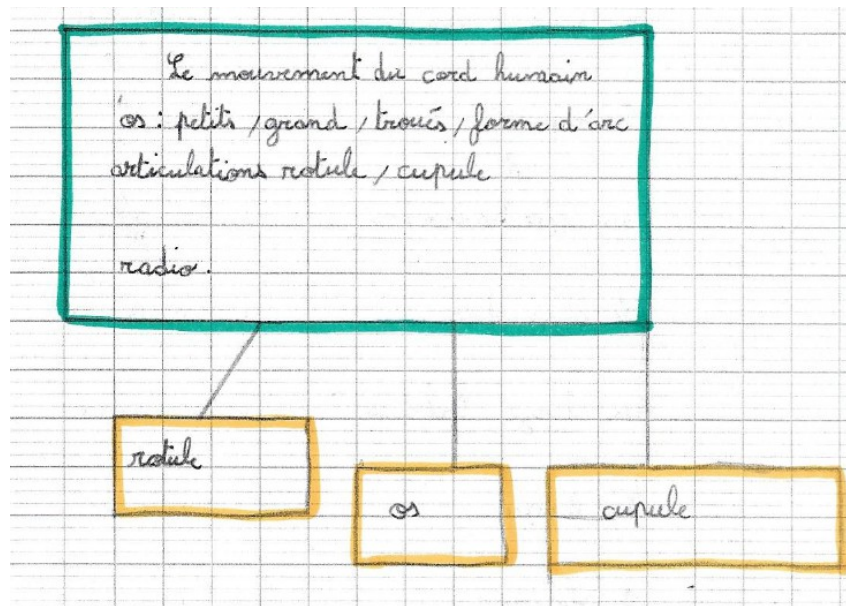 Le mouvement du cord humain
os : petits / grand / troués / forme d'arc
articulations rotule / cupule
radio.
rotule
os
cupule